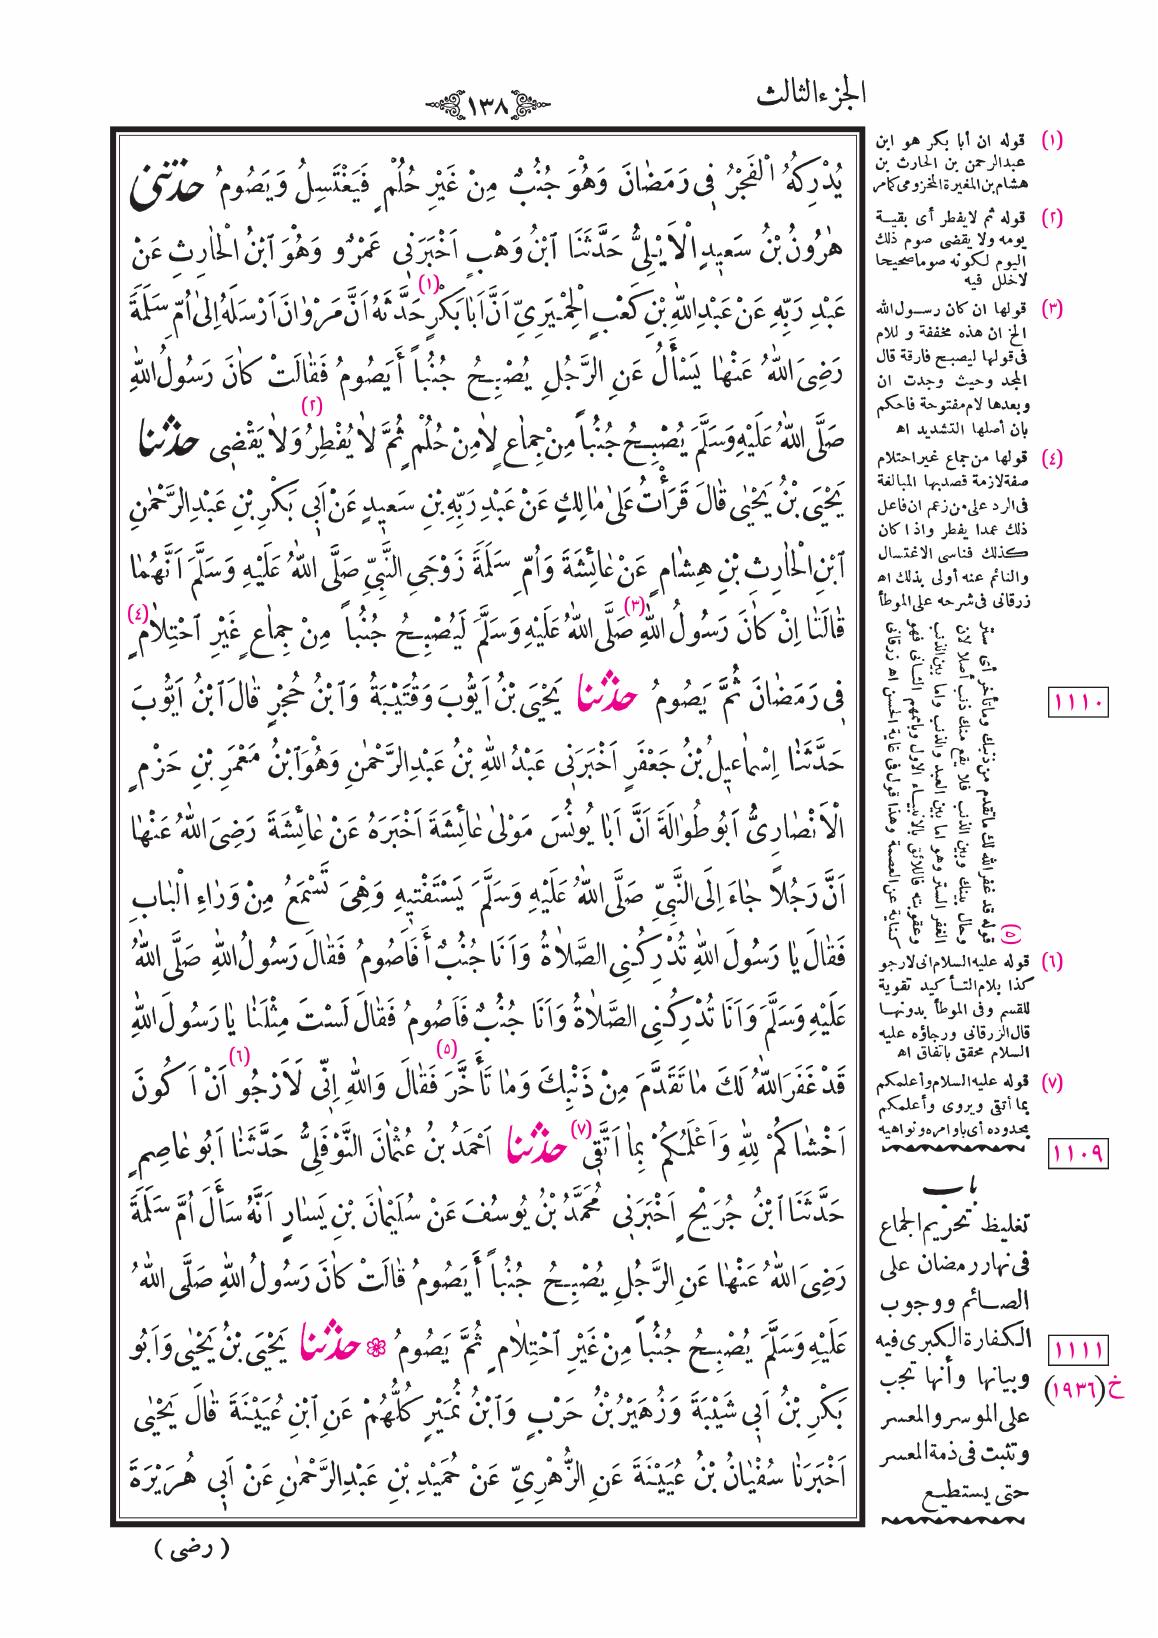 الجزء الثالث
١٣٨
يُدْرِكُهُ الْفَجْرُ فِى رَمَضَانَ وَهُوَ جُنُبٌ مِنْ غَيْرِ حُلُمٍ فَيَغْتَسِلُ وَيَصُومُ حَدَّثَنِى
هٰرُونُ بْنُ سَعِيدٍ الْاَيْلِىُّ حَدَّثَنَا ابْنُ وَهْبٍ اَخْبَرَنِى عَمْرٌو وَهُوَ ابْنُ الْحَارِثِ عَنْ
عَبْدِ رَبِّهِ عَنْ عَبْدِ اللّٰهِ بْنِ كَعْبٍ الْحِمْيَرِىِّ اَنَّ اَبَا بَكْرٍ (١) حَدَّثَهُ اَنَّ مَرْوَانَ اَرْسَلَهُ اِلىٰ اُمِّ سَلَمَةَ
رَضِىَ اللّٰهُ عَنْهَا يَسْأَلُ عَنِ الرَّجُلِ يُصْبِحُ جُنُباً أَيَصُومُ فَقَالَتْ كَانَ رَسُولُ اللّٰهِ
صَلَّى اللّٰهُ عَلَيْهِ وَسَلَّمَ يُصْبِحُ جُنُباً مِنْ جِمَاعٍ لَا مِنْ حُلُمٍ ثُمَّ (٢) لَا يُفْطِرُ وَلَا يَقْضِى حَدَّثَنَا
يَحْيَى بْنُ يَحْيٰى قَالَ قَرَأْتُ عَلىٰ مَالِكٍ عَنْ عَبْدِ رَبِّهِ بْنِ سَعِيدٍ عَنْ اَبِى بَكْرِ بْنِ عَبْدِ الرَّحْمٰنِ
ابْنِ الْحَارِثِ بْنِ هِشَامٍ عَنْ عَائِشَةَ وَاُمِّ سَلَمَةَ زَوْجَىِ النَّبِىِّ صَلَّى اللّٰهُ عَلَيْهِ وَسَلَّمَ اَنَّهُمَا
قَالَتَا اِنْ كَانَ رَسُولُ اللّٰهِ (٣) صَلَّى اللّٰهُ عَلَيْهِ وَسَلَّمَ لَيُصْبِحُ جُنُباً مِنْ جِمَاعٍ غَيْرِ احْتِلَامٍ (٤)
فِى رَمَضَانَ ثُمَّ يَصُومُ حَدَّثَنَا يَحْيَى بْنُ اَيُّوبَ وَقُتَيْبَةُ وَابْنُ حُجْرٍ قَالَ ابْنُ اَيُّوبَ
حَدَّثَنَا اِسْمَاعِيلُ بْنُ جَعْفَرٍ اَخْبَرَنِى عَبْدُ اللّٰهِ بْنُ عَبْدِ الرَّحْمٰنِ وَهُوَ ابْنُ مَعْمَرِ بْنِ حَزْمٍ
الْاَنْصَارِىُّ اَبُو طُوَالَةَ اَنَّ اَبَا يُونُسَ مَوْلىٰ عَائِشَةَ اَخْبَرَهُ عَنْ عَائِشَةَ رَضِىَ اللّٰهُ عَنْهَا
اَنَّ رَجُلاً جَاءَ اِلَى النَّبِىِّ صَلَّى اللّٰهُ عَلَيْهِ وَسَلَّمَ يَسْتَفْتِيهِ وَهْىَ تَسْمَعُ مِنْ وَرَاءِ الْبَابِ
فَقَالَ يَا رَسُولَ اللّٰهِ تُدْرِكُنِى الصَّلَاةُ وَاَنَا جُنُبٌ أَفَاَصُومُ فَقَالَ رَسُولُ اللّٰهِ صَلَّى اللّٰهُ
عَلَيْهِ وَسَلَّمَ وَاَنَا تُدْرِكُنِى الصَّلَاةُ وَاَنَا جُنُبٌ فَاَصُومُ فَقَالَ لَسْتَ مِثْلَنَا يَا رَسُولَ اللّٰهِ
قَدْ غَفَرَ اللّٰهُ لَكَ مَا تَقَدَّمَ مِنْ ذَنْبِكَ وَمَا تَأَخَّرَ (٥) فَقَالَ وَاللّٰهِ اِنِّى لَاَرْجُو (٦) اَنْ اَكُونَ
اَخْشَاكُمْ لِلّٰهِ وَاَعْلَمَكُمْ بِمَا اَتَّقِى (٧) حَدَّثَنَا اَحْمَدُ بْنُ عُثْمَانَ النَّوْفَلِىُّ حَدَّثَنَا اَبُو عَاصِمٍ
حَدَّثَنَا ابْنُ جُرَيْجٍ اَخْبَرَنِى مُحَمَّدُ بْنُ يُوسُفَ عَنْ سُلَيْمَانَ بْنِ يَسَارٍ اَنَّهُ سَأَلَ اُمَّ سَلَمَةَ
رَضِىَ اللّٰهُ عَنْهَا عَنِ الرَّجُلِ يُصْبِحُ جُنُباً أَيَصُومُ قَالَتْ كَانَ رَسُولُ اللّٰهِ صَلَّى اللّٰهُ
عَلَيْهِ وَسَلَّمَ يُصْبِحُ جُنُباً مِنْ غَيْرِ احْتِلَامٍ ثُمَّ يَصُومُ ❁ حَدَّثَنَا يَحْيَى بْنُ يَحْيٰى وَاَبُو
بَكْرِ بْنُ اَبِى شَيْبَةَ وَزُهَيْرُ بْنُ حَرْبٍ وَابْنُ نُمَيْرٍ كُلُّهُمْ عَنِ ابْنِ عُيَيْنَةَ قَالَ يَحْيٰى
اَخْبَرَنَا سُفْيَانُ بْنُ عُيَيْنَةَ عَنِ الزُّهْرِىِّ عَنْ حُمَيْدِ بْنِ عَبْدِ الرَّحْمٰنِ عَنْ اَبِى هُرَيْرَةَ
( رضى )
(١) قوله ان أبا بكر هو ابن
عبدالرحمن بن الحارث بن
هشام بن المغيرة المخزومى كما مر
(٢) قوله ثم لا يفطر أى بقية
يومه ولا يقضى صوم ذلك
اليوم لكونه صوما صحيحا
لا خلل فيه
(٣) قولها ان كان رسول الله
الخ ان هذه مخففة و للام
فى قولها ليصبح فارقة قال
المجد وحيث وجدت ان
وبعدها لام مفتوحة فاحكم
بان أصلها التشديد اه
(٤) قولها من جماع غير احتلام
صفة لازمة قصد بها المبالغة
فى الرد على من زعم ان فاعل
ذلك عمدا يفطر واذا كان
كذلك فناسى الاغتسال
والنائم عنه أولى بذلك اه
زرقانى فى شرحه على الموطأ
(٥) قوله قد غفر الله لك ما تقدم من ذنبك وما تأخر أى ستر
وحال بينك وبين الذنب فلا يقع منك ذنب أصلا لان
الغفر الستر وهو اما بين العبد والذنب واما بين الذنب
وعقوبته فاللائق بالانبياء الاول وباممهم الثانى فهو
كناية عن العصمة وهذا قول فى غاية الحسن اه زرقانى
(٦) قوله عليه السلام انى لارجو
كذا بلام التأكيد تقوية
للقسم وفى الموطأ بدونها
قال الزرقانى ورجاؤه عليه
السلام محقق باتفاق اه
(٧) قوله عليه السلام وأعلمكم
بما أتقى ويروى وأعلمكم
بحدوده أى باوامره ونواهيه
باب
تغليظ تحريم الجماع
فى نهار رمضان على
الصائم ووجوب
الكفارة الكبرى فيه
وبيانها وأنها تجب
على الموسر والمعسر
وتثبت فى ذمة المعسر
حتى يستطيع
١١١٠
١١٠٩
١١١١
خ (١٩٣٦)